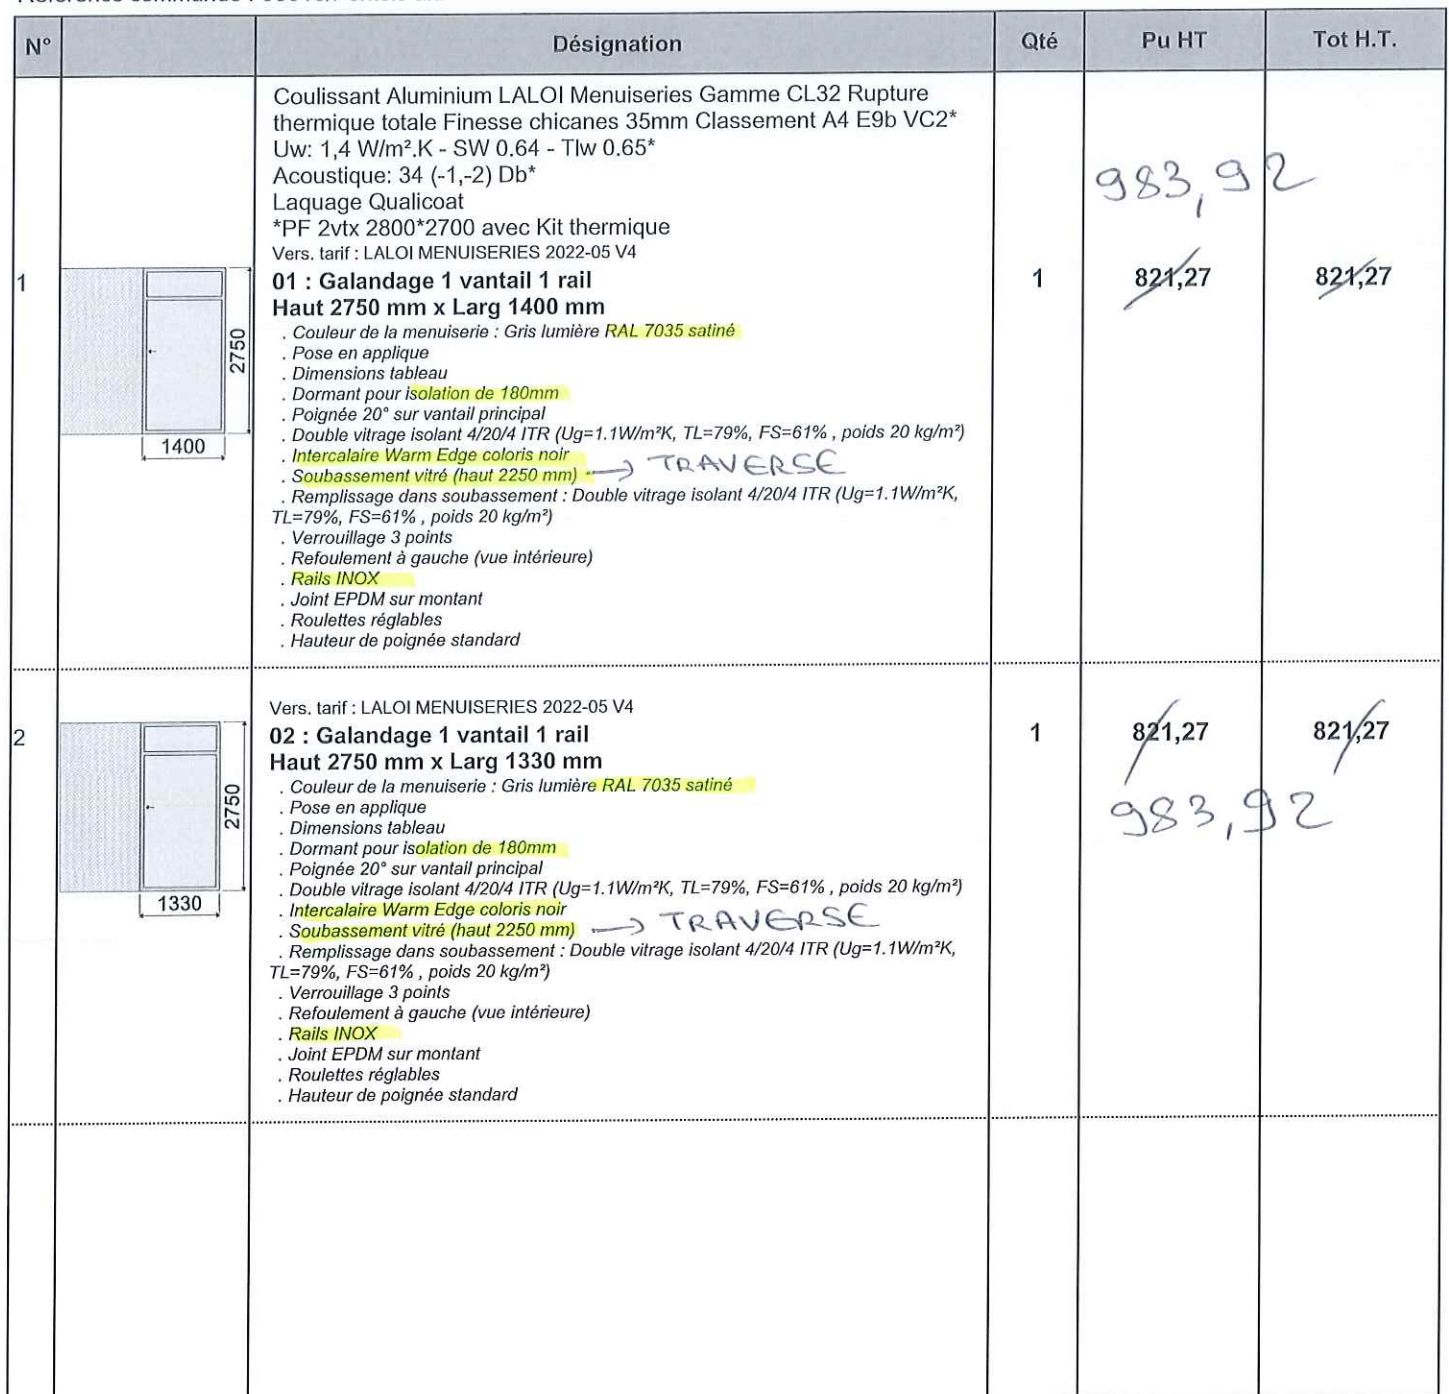 N° Désignation Qté Pu HT Tot H.T.
Coulissant Aluminium LALOI Menuiseries Gamme CL32 Rupture
thermique totale Finesse chicanes 35mm Classement A4 E9b VC2*
Uw: 1,4 W/m².K - SW 0.64 - Tlw 0.65*
Acoustique: 34 (-1,-2) Db*
Laquage Qualicoat
*PF 2vtx 2800*2700 avec Kit thermique
983,92
Vers. tarif : LALOI MENUISERIES 2022-05 V4
1 01 : Galandage 1 vantail 1 rail 1 821,27 821,27
Haut 2750 mm x Larg 1400 mm
2750
1400
. Couleur de la menuiserie : Gris lumière RAL 7035 satiné
. Pose en applique
. Dimensions tableau
. Dormant pour isolation de 180mm
. Poignée 20° sur vantail principal
. Double vitrage isolant 4/20/4 ITR (Ug=1.1W/m²K, TL=79%, FS=61% , poids 20 kg/m²)
. Intercalaire Warm Edge coloris noir
. Soubassement vitré (haut 2250 mm) → TRAVERSE
. Remplissage dans soubassement : Double vitrage isolant 4/20/4 ITR (Ug=1.1W/m²K,
TL=79%, FS=61% , poids 20 kg/m²)
. Verrouillage 3 points
. Refoulement à gauche (vue intérieure)
. Rails INOX
. Joint EPDM sur montant
. Roulettes réglables
. Hauteur de poignée standard
Vers. tarif : LALOI MENUISERIES 2022-05 V4
2 02 : Galandage 1 vantail 1 rail 1 821,27 821,27
Haut 2750 mm x Larg 1330 mm
983,92
2750
1330
. Couleur de la menuiserie : Gris lumière RAL 7035 satiné
. Pose en applique
. Dimensions tableau
. Dormant pour isolation de 180mm
. Poignée 20° sur vantail principal
. Double vitrage isolant 4/20/4 ITR (Ug=1.1W/m²K, TL=79%, FS=61% , poids 20 kg/m²)
. Intercalaire Warm Edge coloris noir
. Soubassement vitré (haut 2250 mm) → TRAVERSE
. Remplissage dans soubassement : Double vitrage isolant 4/20/4 ITR (Ug=1.1W/m²K,
TL=79%, FS=61% , poids 20 kg/m²)
. Verrouillage 3 points
. Refoulement à gauche (vue intérieure)
. Rails INOX
. Joint EPDM sur montant
. Roulettes réglables
. Hauteur de poignée standard